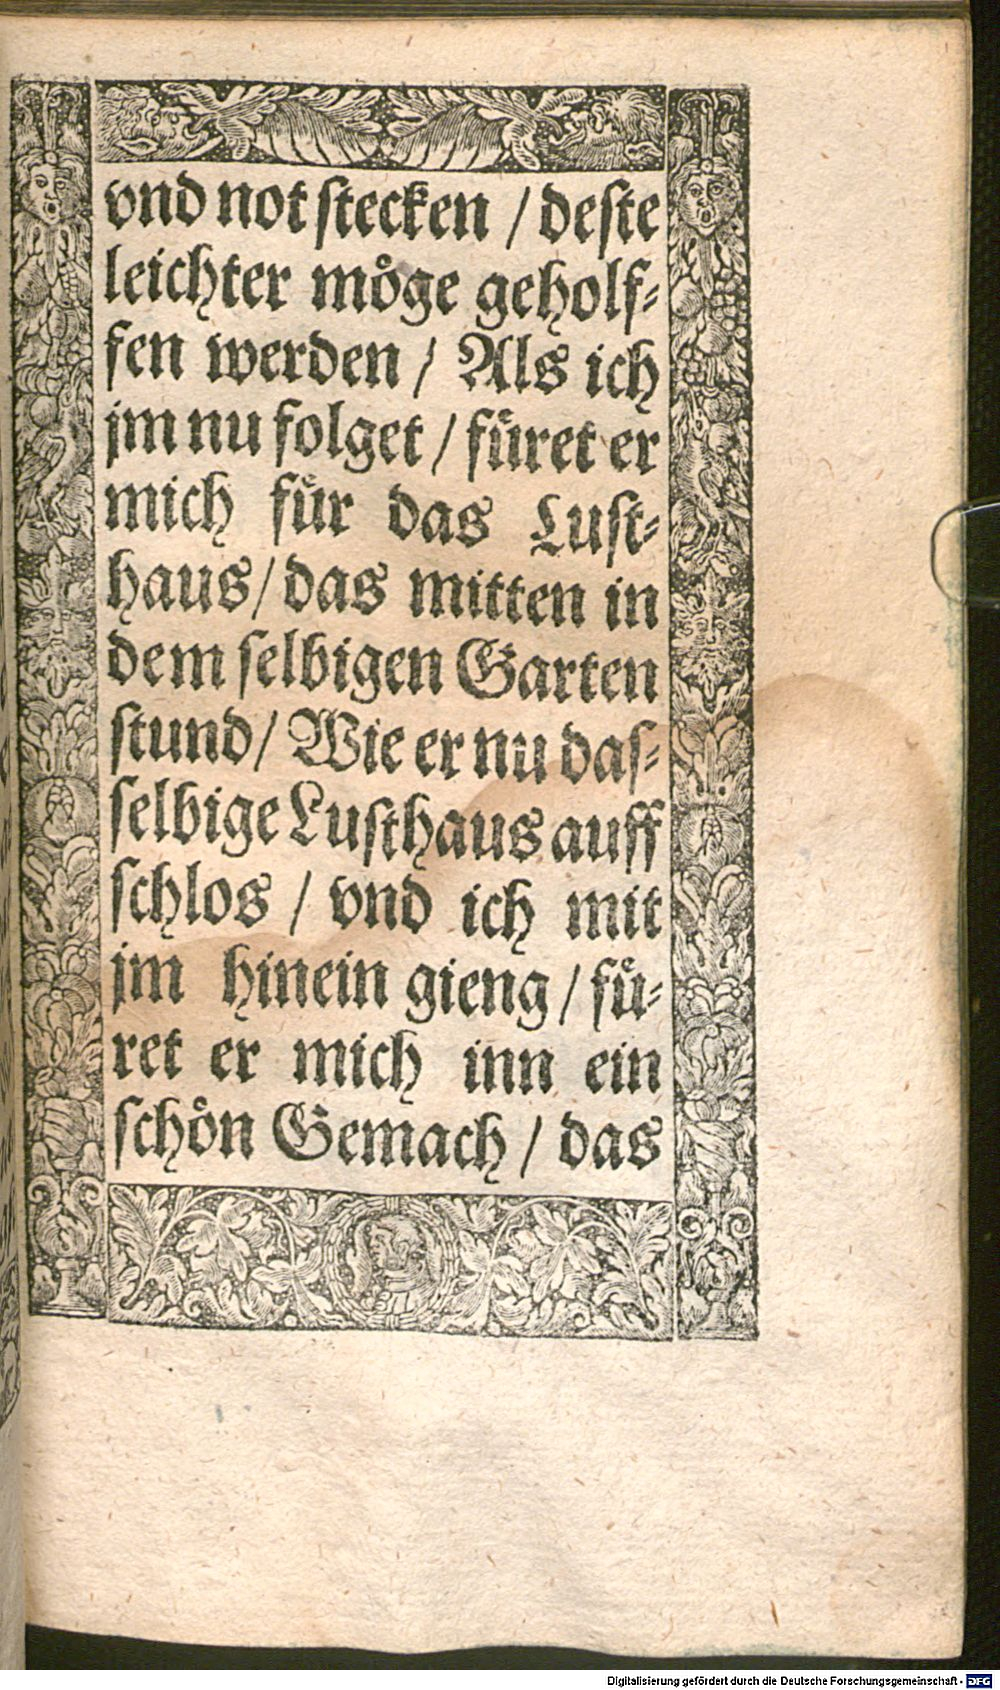 vnd not stecken / deste
leichter möge geholf⸗
fen werden / Als ich
jm nu folget / füret er
mich für das Lust⸗
haus / das mitten in
dem selbigen Garten
stund / Wie er nu das⸗
selbige Lusthaus auff
schlos / vnd ich mit
jm hinein gieng / fü⸗
ret er mich inn ein
schön Gemach / das
Digitalisierung gefördert durch die Deutsche Forschungsgemeinschaft - DFG